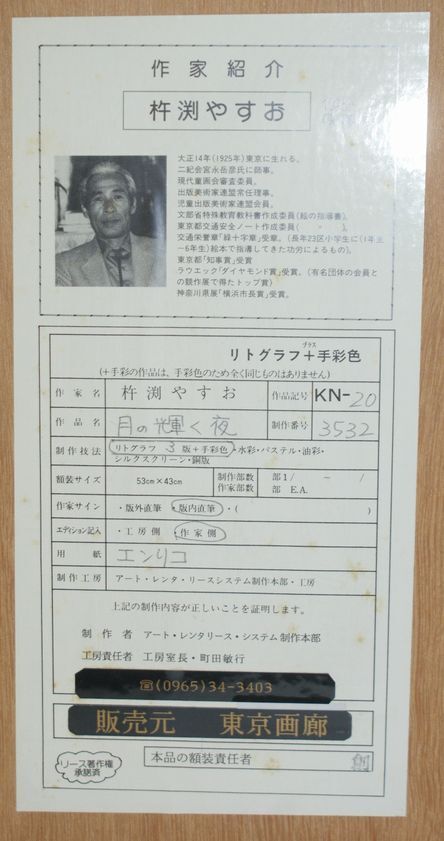 作家紹介
杵渕やすお
大正14年(1925年)東京に生れる。
二紀会宮永岳彦氏に師事。
現代童画会審査委員。
出版美術家連盟常任理事。
児童出版美術家連盟会員。
文部省特殊教育教科書作成委員(絵の指導書)。
東京都交通安全ノート作成委員(
交通栄誉章「緑十字章」受章。(長年23区小学生に(1年生
~6年生)絵本で指導してきた功労によるもの)。
東京都「知事賞」受賞
ラウエック「ダイヤモンド賞」受賞。(有名団体の会員と
の競作展で得たトップ賞)
神奈川県展「横浜市長賞」受賞。
プラス
リトグラフ+手彩色
(+手彩の作品は、手彩色のため全く同じものはありません)
作家名 杵渕やすお 作品記号 KN-20
作品名 月の輝く夜 制作番号 3532
制作技法 リトグラフ 3 版+手彩色・水彩・パステル・油彩・
シルクスクリーン・銅版
額装サイズ 53cm×43cm 制作部数 部1/ - /
作家部数 部 E.A.
作家サイン ・版外直筆 ・版内直筆 ・( )
エディション記入 ・工房側 ・作家側
用紙 エンリコ
制作工房 アート・レンタ・リースシステム制作本部・工房
上記の制作内容が正しいことを証明します。
制作者 アート・レンタリース・システム制作本部
工房責任者 工房室長・町田敏行
☎(0965)34-3403
販売元 東京画廊
リース著作権
承諾済
本品の額装責任者